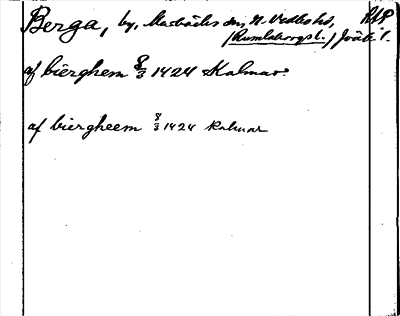 Berga, by, Marbäcks sn, N. Vedbo hd, RAP
/Rumlaborgs l./ Jönk. l.
af bierghem 8/3 1424 Kalmar.
af biergheem 8/3 1424 Kalmar